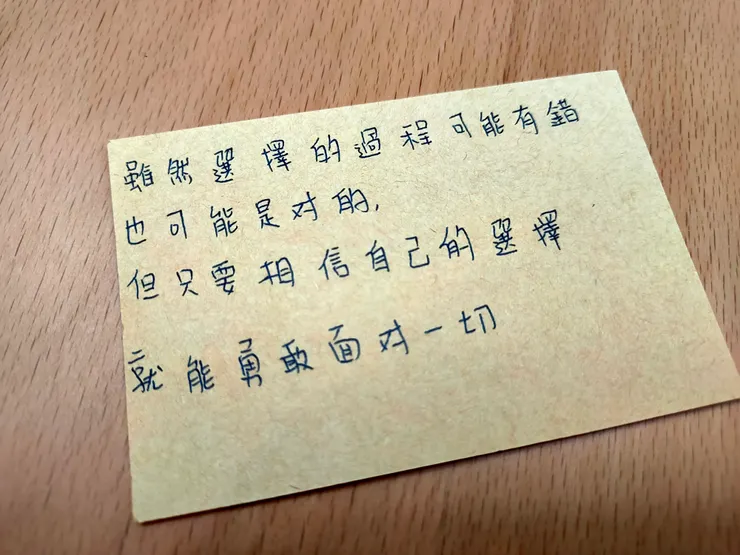 雖然選擇的過程可能有錯
也可能是对的,
但只要相信自己的選擇
就能勇敢面对一切